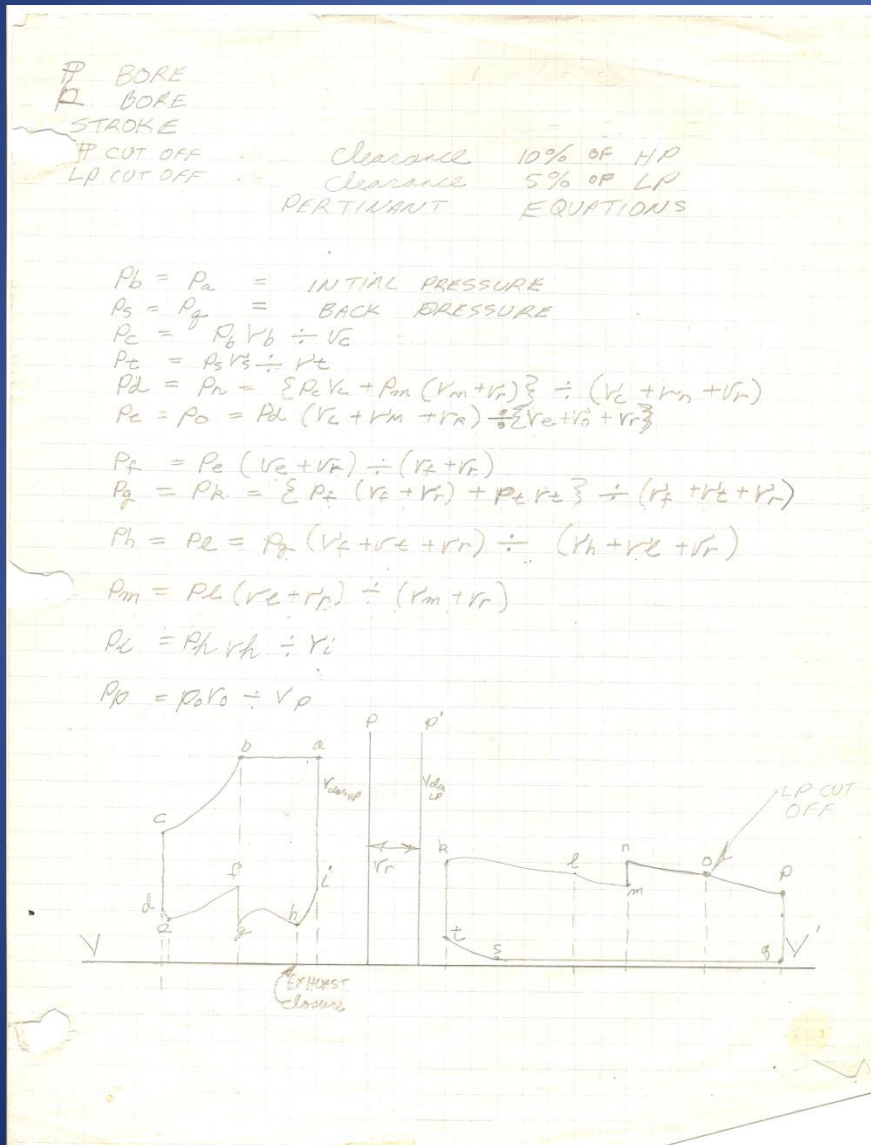 HP BORE
LP BORE
STROKE
HP CUT OFF Clearance 10% OF HP
LP CUT OFF Clearance 5% OF LP
PERTINANT EQUATIONS
Pb = Pa = INTIAL PRESSURE
Ps = Pq = BACK PRESSURE
Pc = Pb Vb ÷ Vc
Pt = Ps Vs ÷ Vt
Pd = Pn = {Pc Vc + Pm (Vm + Vr)} ÷ (Vc + Vn + Vr)
Pe = Po = Pd (Vc + Vm + VR) ÷ {Ve + Vo + Vr}
Pf = Pe (Ve + Vr) ÷ (Vf + Vr)
Pg = Pk = {Pf (Vf + Vr) + Pt Vt} ÷ (Vf + Vt + Vr)
Ph = Pl = Pg (Vf + Vt + Vr) ÷ (Vh + Vl + Vr)
Pm = Pl (Vl + Vr) ÷ (Vm + Vr)
Pi = Ph Vh ÷ Vi
Pp = Po Vo ÷ Vp
P P'
b a
Vclear HP
Vclea LP
LP CUT
OFF
c
Vr
k l n o p
f i m
d e g h
t s q
V V'
EXHAUST
closure